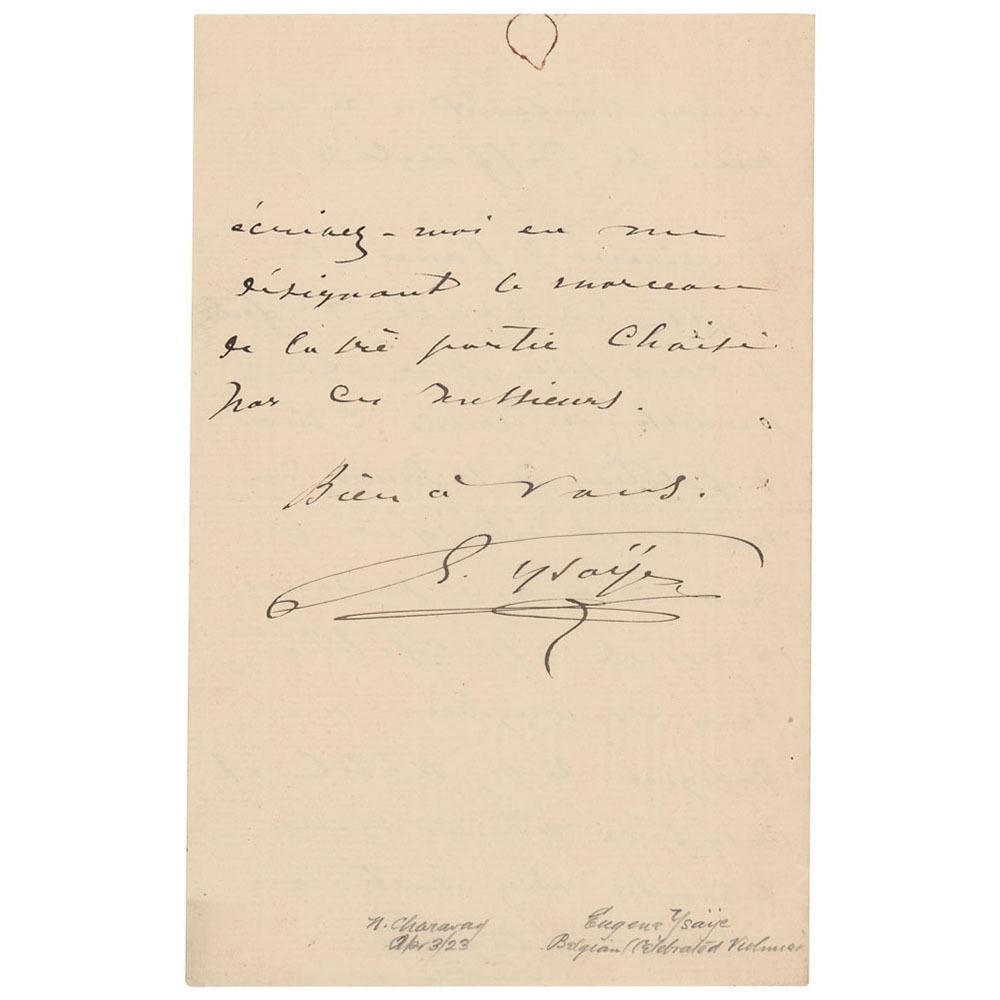 écrivez-moi en me
désignant le morceau
de la 1rè partie Choisi
par ces Messieurs.
Bien à Vous.
E. Ysaÿe
N. Charavay
Apr 3/23
Eugene Ysaÿe
Belgian (Celebrated Violinist